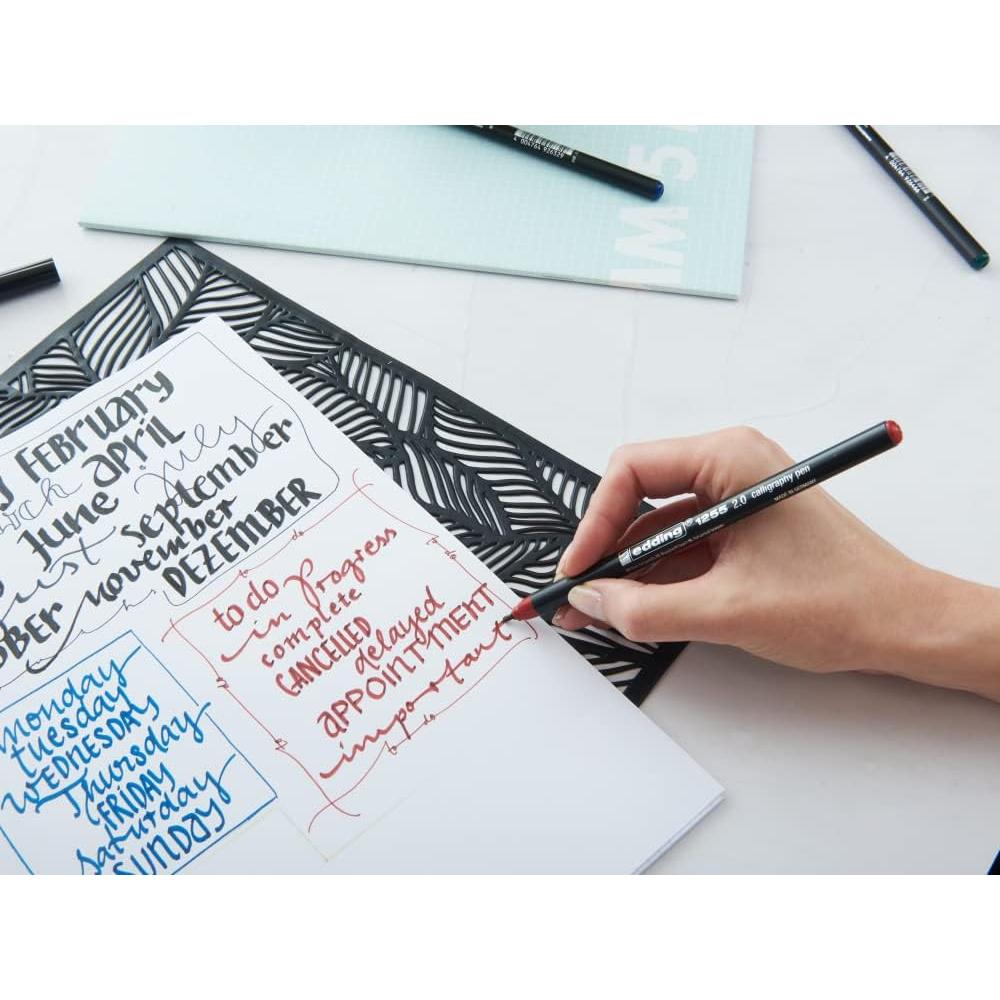 4 004764 926329
M 5
February
April
June July
September
november
DEZEMBER
to do
in Progress
complete
CANCELLED
delayed
APPOINTMENT
important
monday
tuesday
WEDNESDAY
Thursday
FRIDAY
saturday
SUNDAY
edding 1255 2.0 calligraphy pen
MADE IN GERMANY